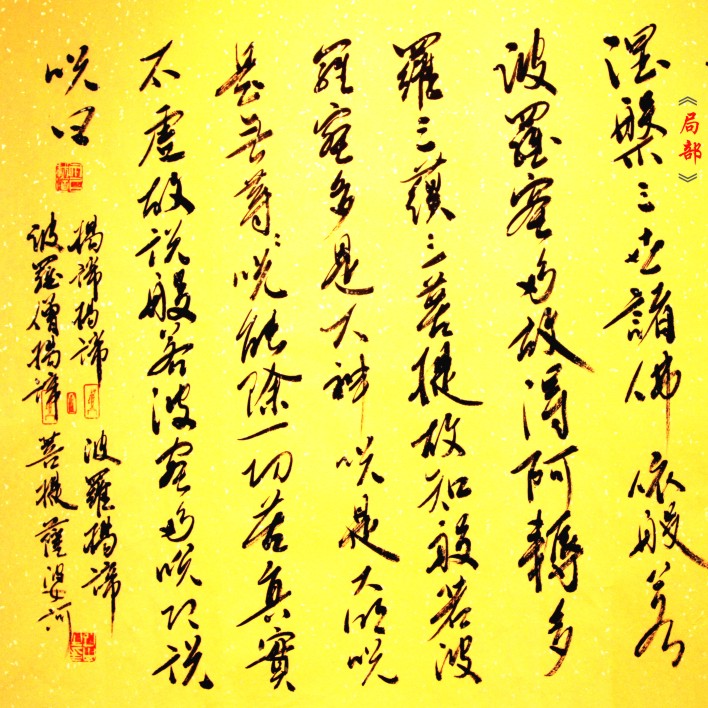 《局部》
涅槃三世諸佛依般若
波羅蜜多故得阿耨多
羅三藐三菩提故知般若波
羅蜜多是大神咒是大明咒
是无等々咒能除一切苦真實
不虛故说般若波蜜多咒即说
咒曰
揭諦揭諦 波羅揭諦
波羅僧揭諦 菩提薩婆訶